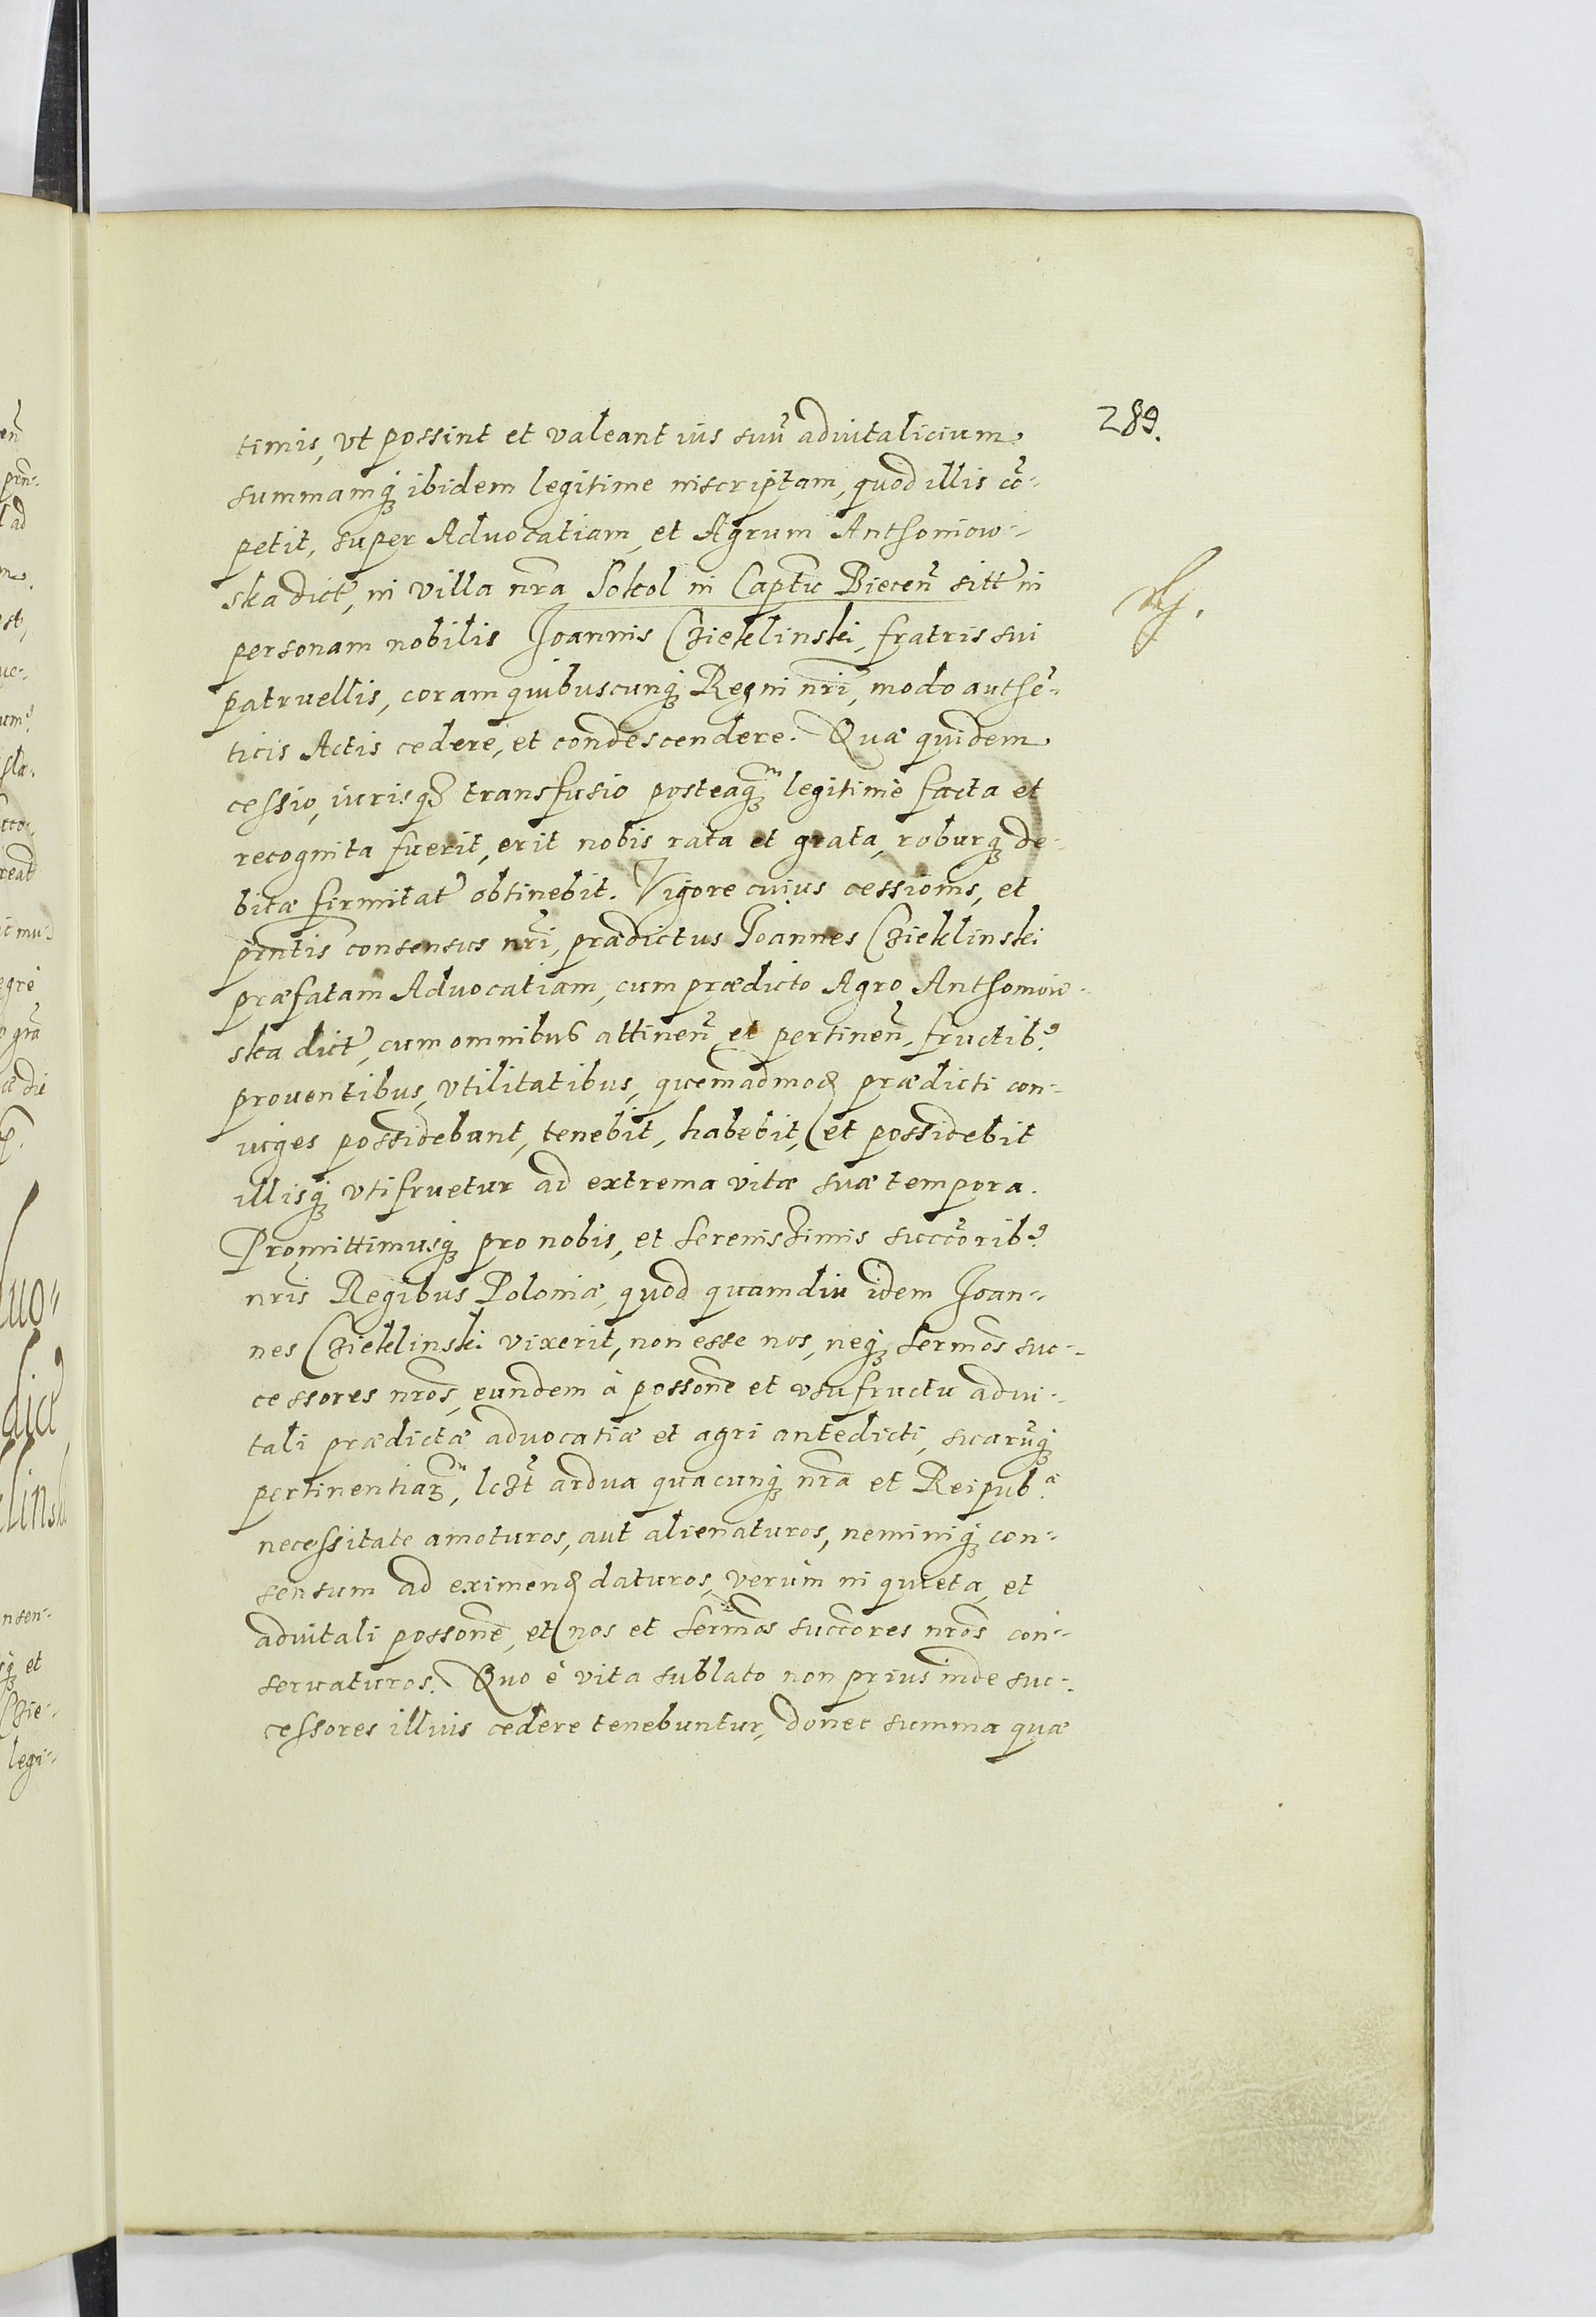 289.
timis, vt possint et valeant ius suũ aduitalicium
summamq́ꝫ ibidem legitime inscriptam, quod illis cõ-
petit, super Aduocatiam, et Agrum Anthoniow-
ska dict̃, in villa nr̃a Sokol in Capt̃u Biecen̄ sitt̃ in
personam nobilis Joannis Czieklinski, fratris sui
patruellis, coram quibuscunq́ꝫ Regni nr̃i, modo authẽ-
ticis Actis cedere, et condescendere. Quæ quidem
cessio, iurisqꝫ transfusio posteaqꝫm legitimè facta et
recognita fuerit, erit nobis rata et grata, roburqꝫ de-
bitæ firmitat̃ obtinebit. Vigore cuius cessionis, et
pr̃ntis consensus nr̃i, prædictus Joannes Czieklinski
præfatam Aduocatiam, cum prædicto Agro Anthoniow-
ska dict̃, cum omnibus attinen̄ et pertinen̄, fructibꝰ
prouentibus, vtilitatibus, quemadmoꝺ prædicti con-
iuges possidebant, tenebit, habebit, et possidebit
illisq́ꝫ vtifruetur ad extrema vitæ suæ tempora.
Promittimusq́ꝫ pro nobis, et Serenissimis succc̃oribꝰ
nr̃is Regibus Poloniæ, quod quamdiu idem Joan-
nes Czieklinski vixerit, non esse nos, neq́ꝫ Serm̃os suc-
cessores nr̃os, eundem à posson̄e et vsufructu adui-
tali prædictæ aduocatiæ et agri antedicti, suarũq́ꝫ
pertinentiaꝝ, lczt̃ ardua quacunq́ꝫ nr̃a et Reipub.ᵃ
necessitate amoturos, aut alienaturos, neminiq́ꝫ con-
sensum ad eximenꝺ daturos, verùm in quieta, et
aduitali posson̄e, et nos et Serm̃os succc̃ores nr̃os con-
seruaturos. Quo è vita sublato non prius inde suc-
cessores illius cedere tenebuntur, donec summa quæ